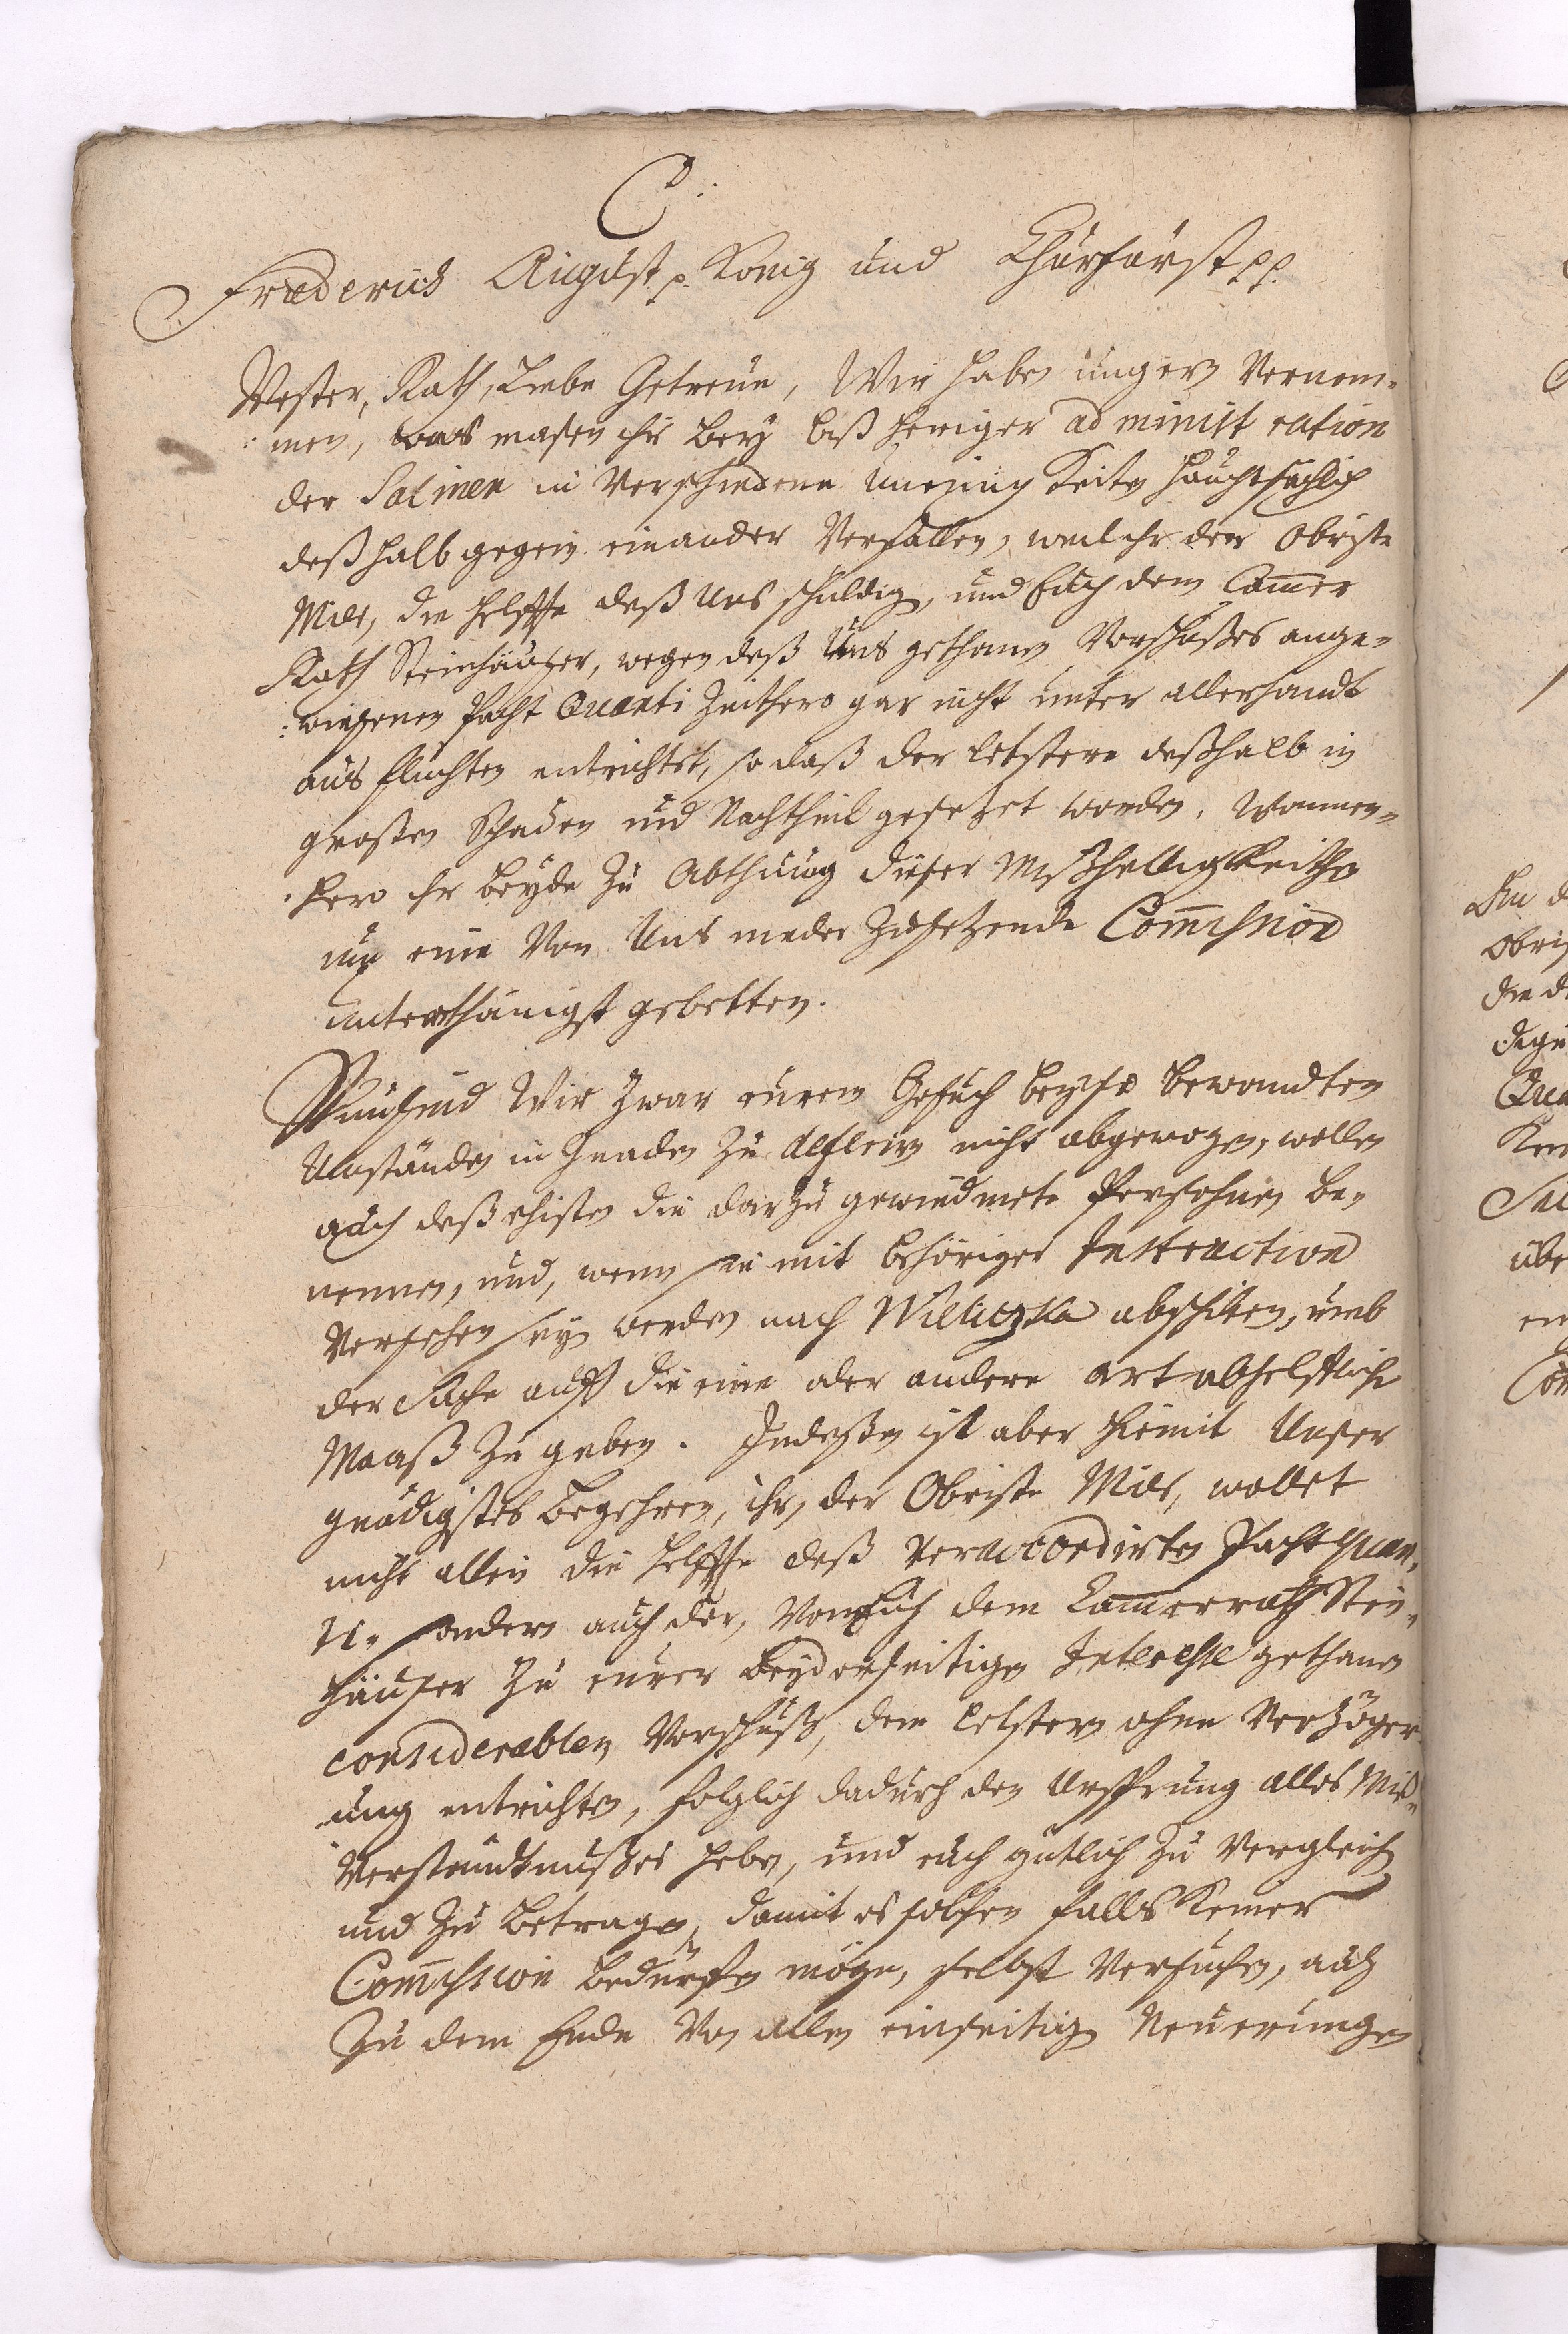 C:
Friederich August p. König und Churfürst pp.
Vester, Rath, Liebe Getreue, Wir haben ungern Vernom¬
men, was masen ihr bey biß heriger administration
der Salinen in Verschiedene Uneinig Keiten hauptsächlich
deßhalb gegen einander Verfallen, weil ihr der Obriste
Mier, die helffte deß Uns schuldig, und Euch dem Cammer
Rath Steinhäuser, wegen deß Uns gethanen Vorschußes ange¬
wiesenen Pacht Quanti Zeithero gar nicht unter allerhandt
aus flüchten entrichtet, so daß der letztere deßhalb in
großen Schaden und Nachtheil gesetzet worden. Wannen¬
hero ihr beyde Zu Abthuung dieser Mißhelligkeithen
um eine Von Uns nieder Zusetzende Commission
unterthänigst gebetten.
Nun sind Wir Zwar eurem Gesuch bey so bewandten
Umständen in Gnaden Zu deferiren nicht abgewogen, wollen
auch deß ehisten die darzu gewiedmete Persohnen be¬
nennen, und, wenn sie mit behöriger Instruction
Versehen seyn werden nach Williczka abschiken, umb
der Sache auff die eine oder andere art abhelffliche
Maaß Zu geben. Indeßen ist aber hiemit Unser
gnädigstes Begehren, ihr, der Obriste Mier, wollet
nicht allein die helffte deß veraccordirten Pacht Quan¬
ti, sondern auch den, Von Euch dem Cammerrath Stein¬
häuser Zu eurer beyderseitigen Interesse gethanen
considerablen Vorschuß, dem letztern ohne Verzöger¬
ung entrichten, folglich dadurch den Ursprung alles Miß¬
Verständtnußes heben, und euch gütlich Zu Vergleichen
und Zu betragen, damit es solchen falls Keiner
Commission bedürffen möge, selbst Versuchen, auch
Zu dem Ende Von allen einseitigen Neuerungen
Obris
die d
Qua
übe